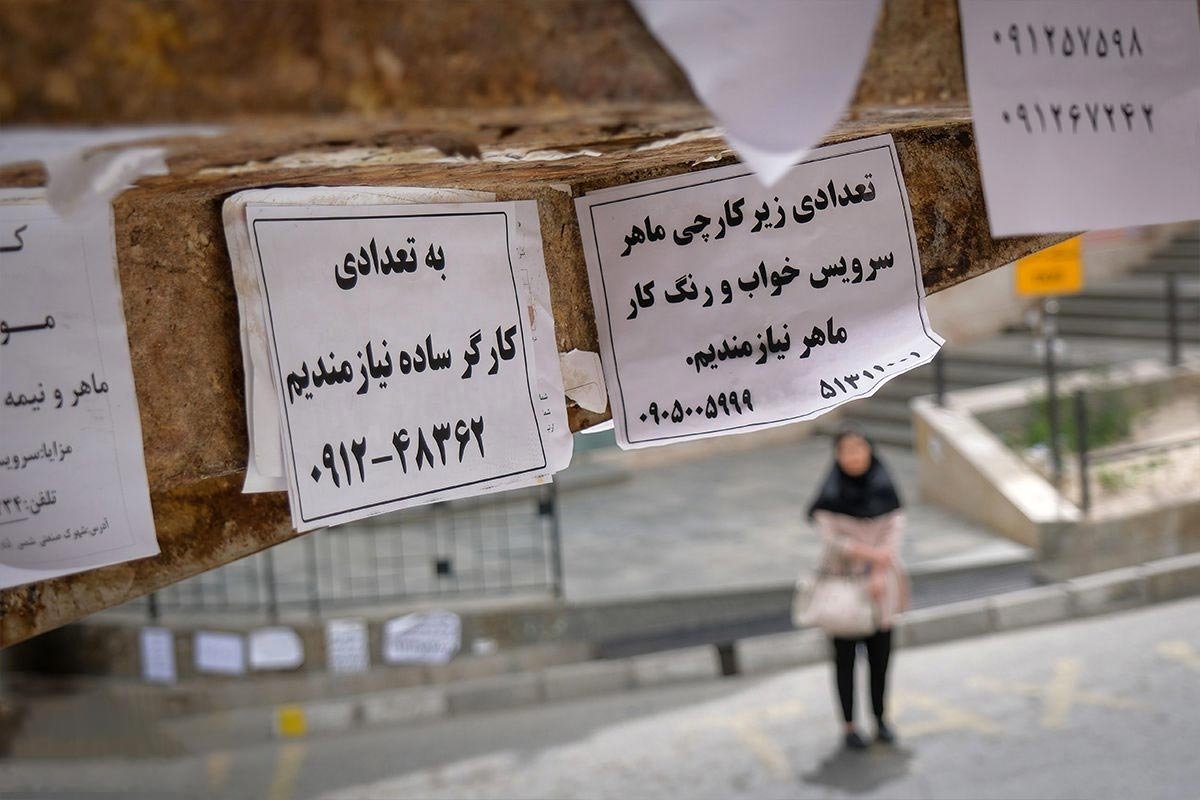 ماهر و نیمه
مزایا:سرویس
تلفن:
آدرس:شهرک صنعتی شمس
به تعدادی
کارگر ساده نیازمندیم
۰۹۱۲-۴۸۳۶۲
تعدادی زیر کارچی ماهر
سرویس خواب و رنگ کار
ماهر نیازمندیم.
۰۹۰۵۰۰۵۹۹۹
۵۱۳۱۱۰۰۱
۰۹۱۲۵۷۵۹۸
۰۹۱۲۶۷۲۴۲